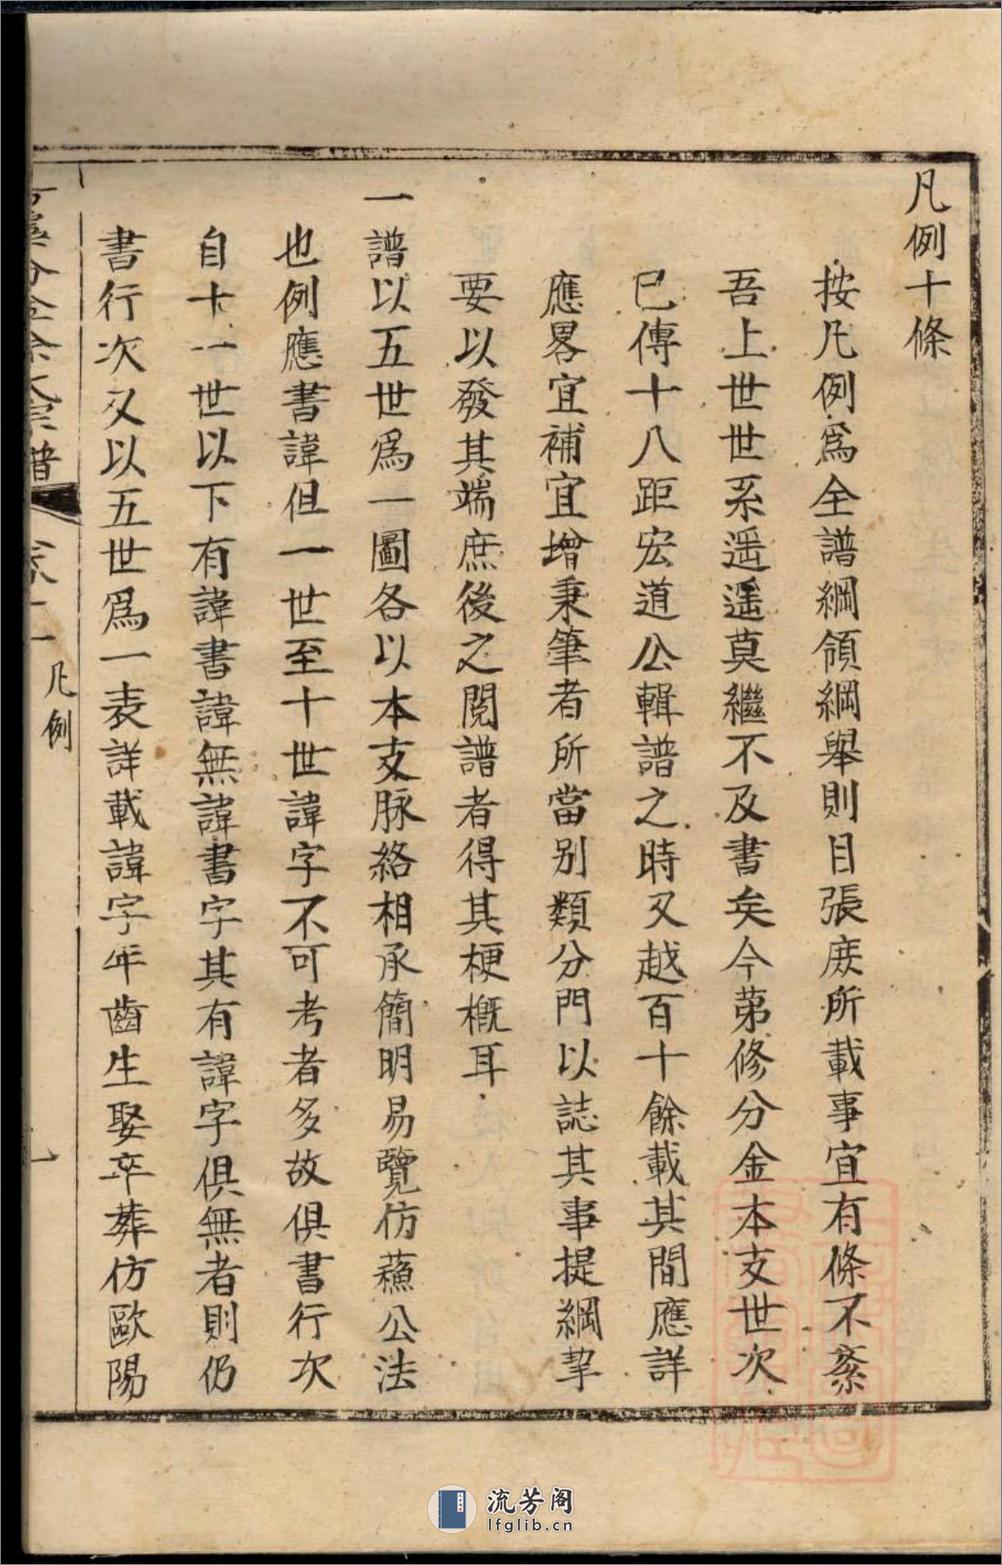 凡例十條
按凡例爲全譜綱領綱舉則目張庶所載事宜有條不紊
吾上世世系遥遥莫繼不及書矣今第修分金本支世次
已傳十八距宏道公輯譜之時又越百十餘載其間應詳
應畧宜補宜增秉筆者所當别類分門以誌其事提綱挈
要以發其端庶後之閱譜者得其梗概耳
一譜以五世爲一圖各以本支脉絡相承簡明易覽仿蘓公法
也例應書諱但一世至十世諱字不可考者多故俱書行次
自十一世以下有諱書諱無諱書字其有諱字俱無者則仍
書行次又以五世爲一表詳載諱字年齒生娶卒葬仿歐陽
宗譜
凡例
流芳阁
lfglib.cn